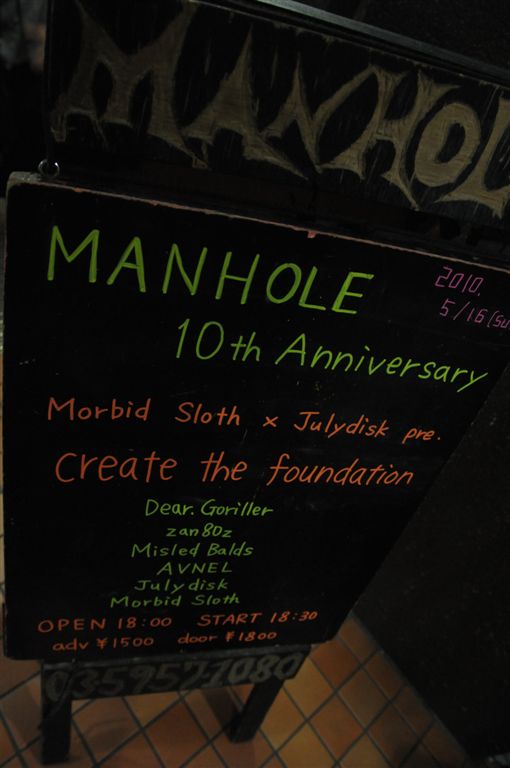 MANHOL
MANHOLE
2010.
5/16(su
10th Anniversary
Morbid Sloth x Julydisk pre.
create the foundation
Dear. Goriller
zan80z
Misled Balds
AVNEL
Julydisk
Morbid Sloth
OPEN 18:00 START 18:30
adv ¥1500 door ¥1800
035952-1080